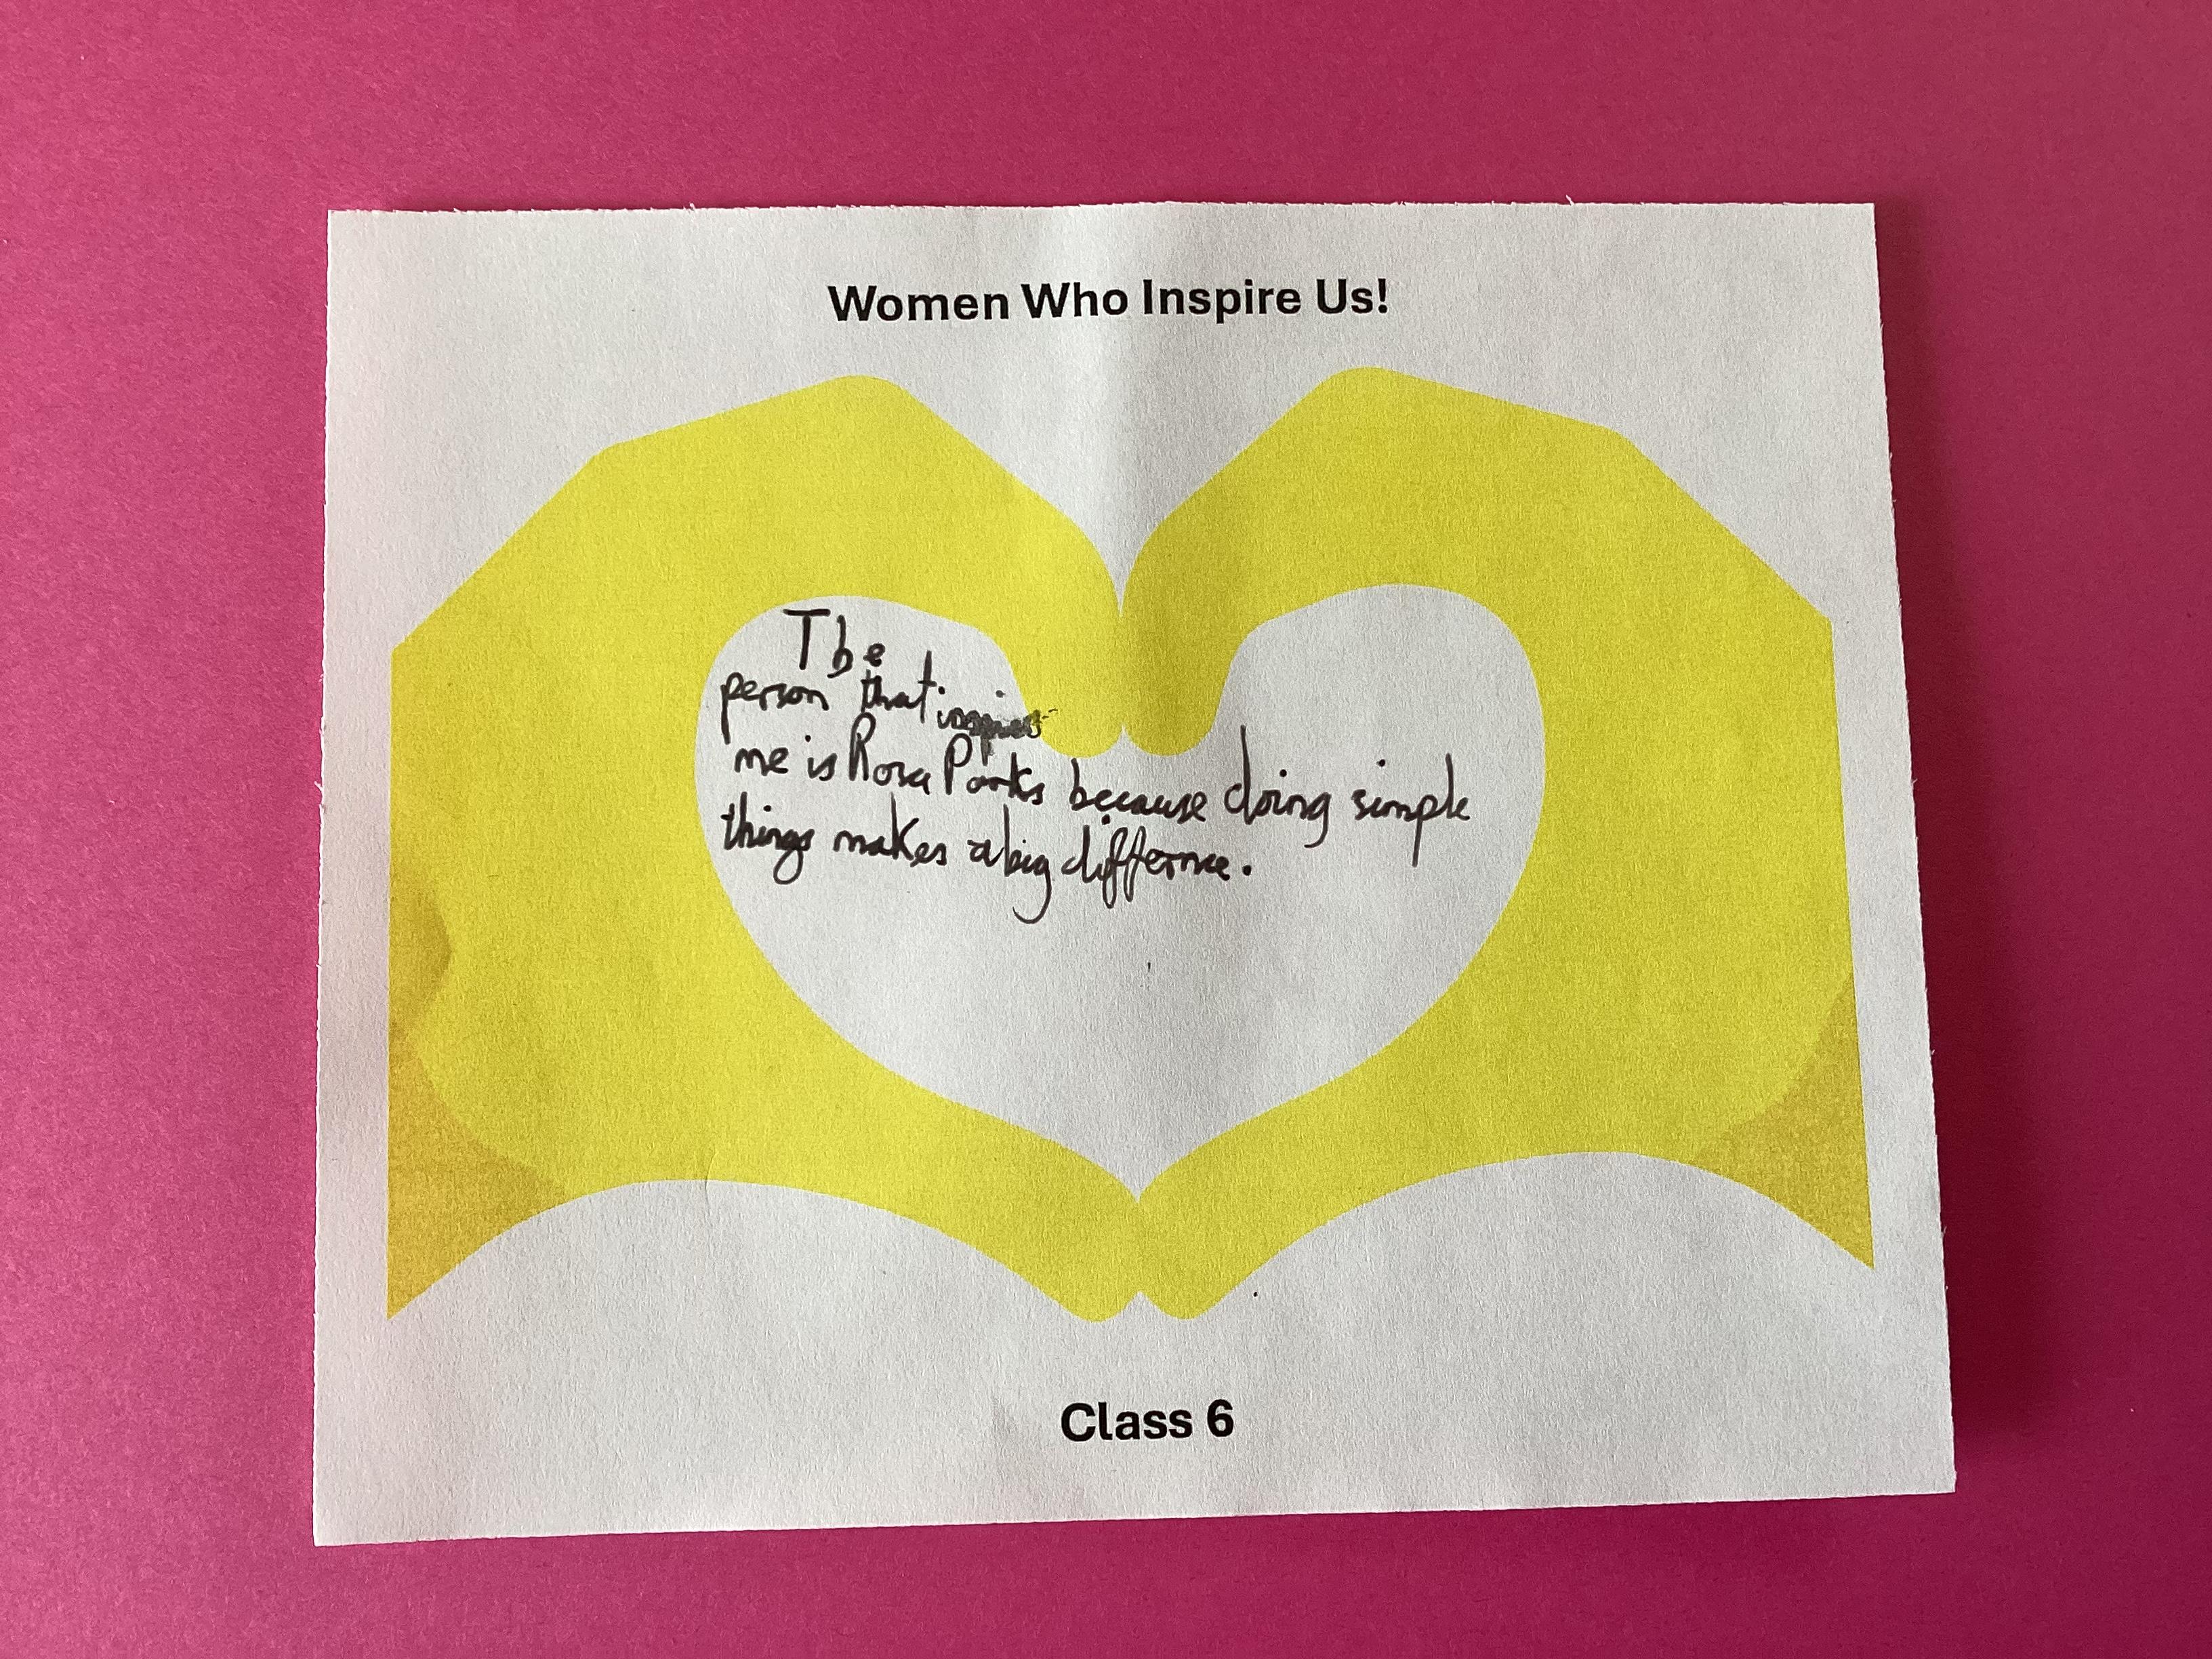 Women Who Inspire Us!
The
person that inspires
me is Rosa Parks because doing simple
things makes a big differnce.
Class 6